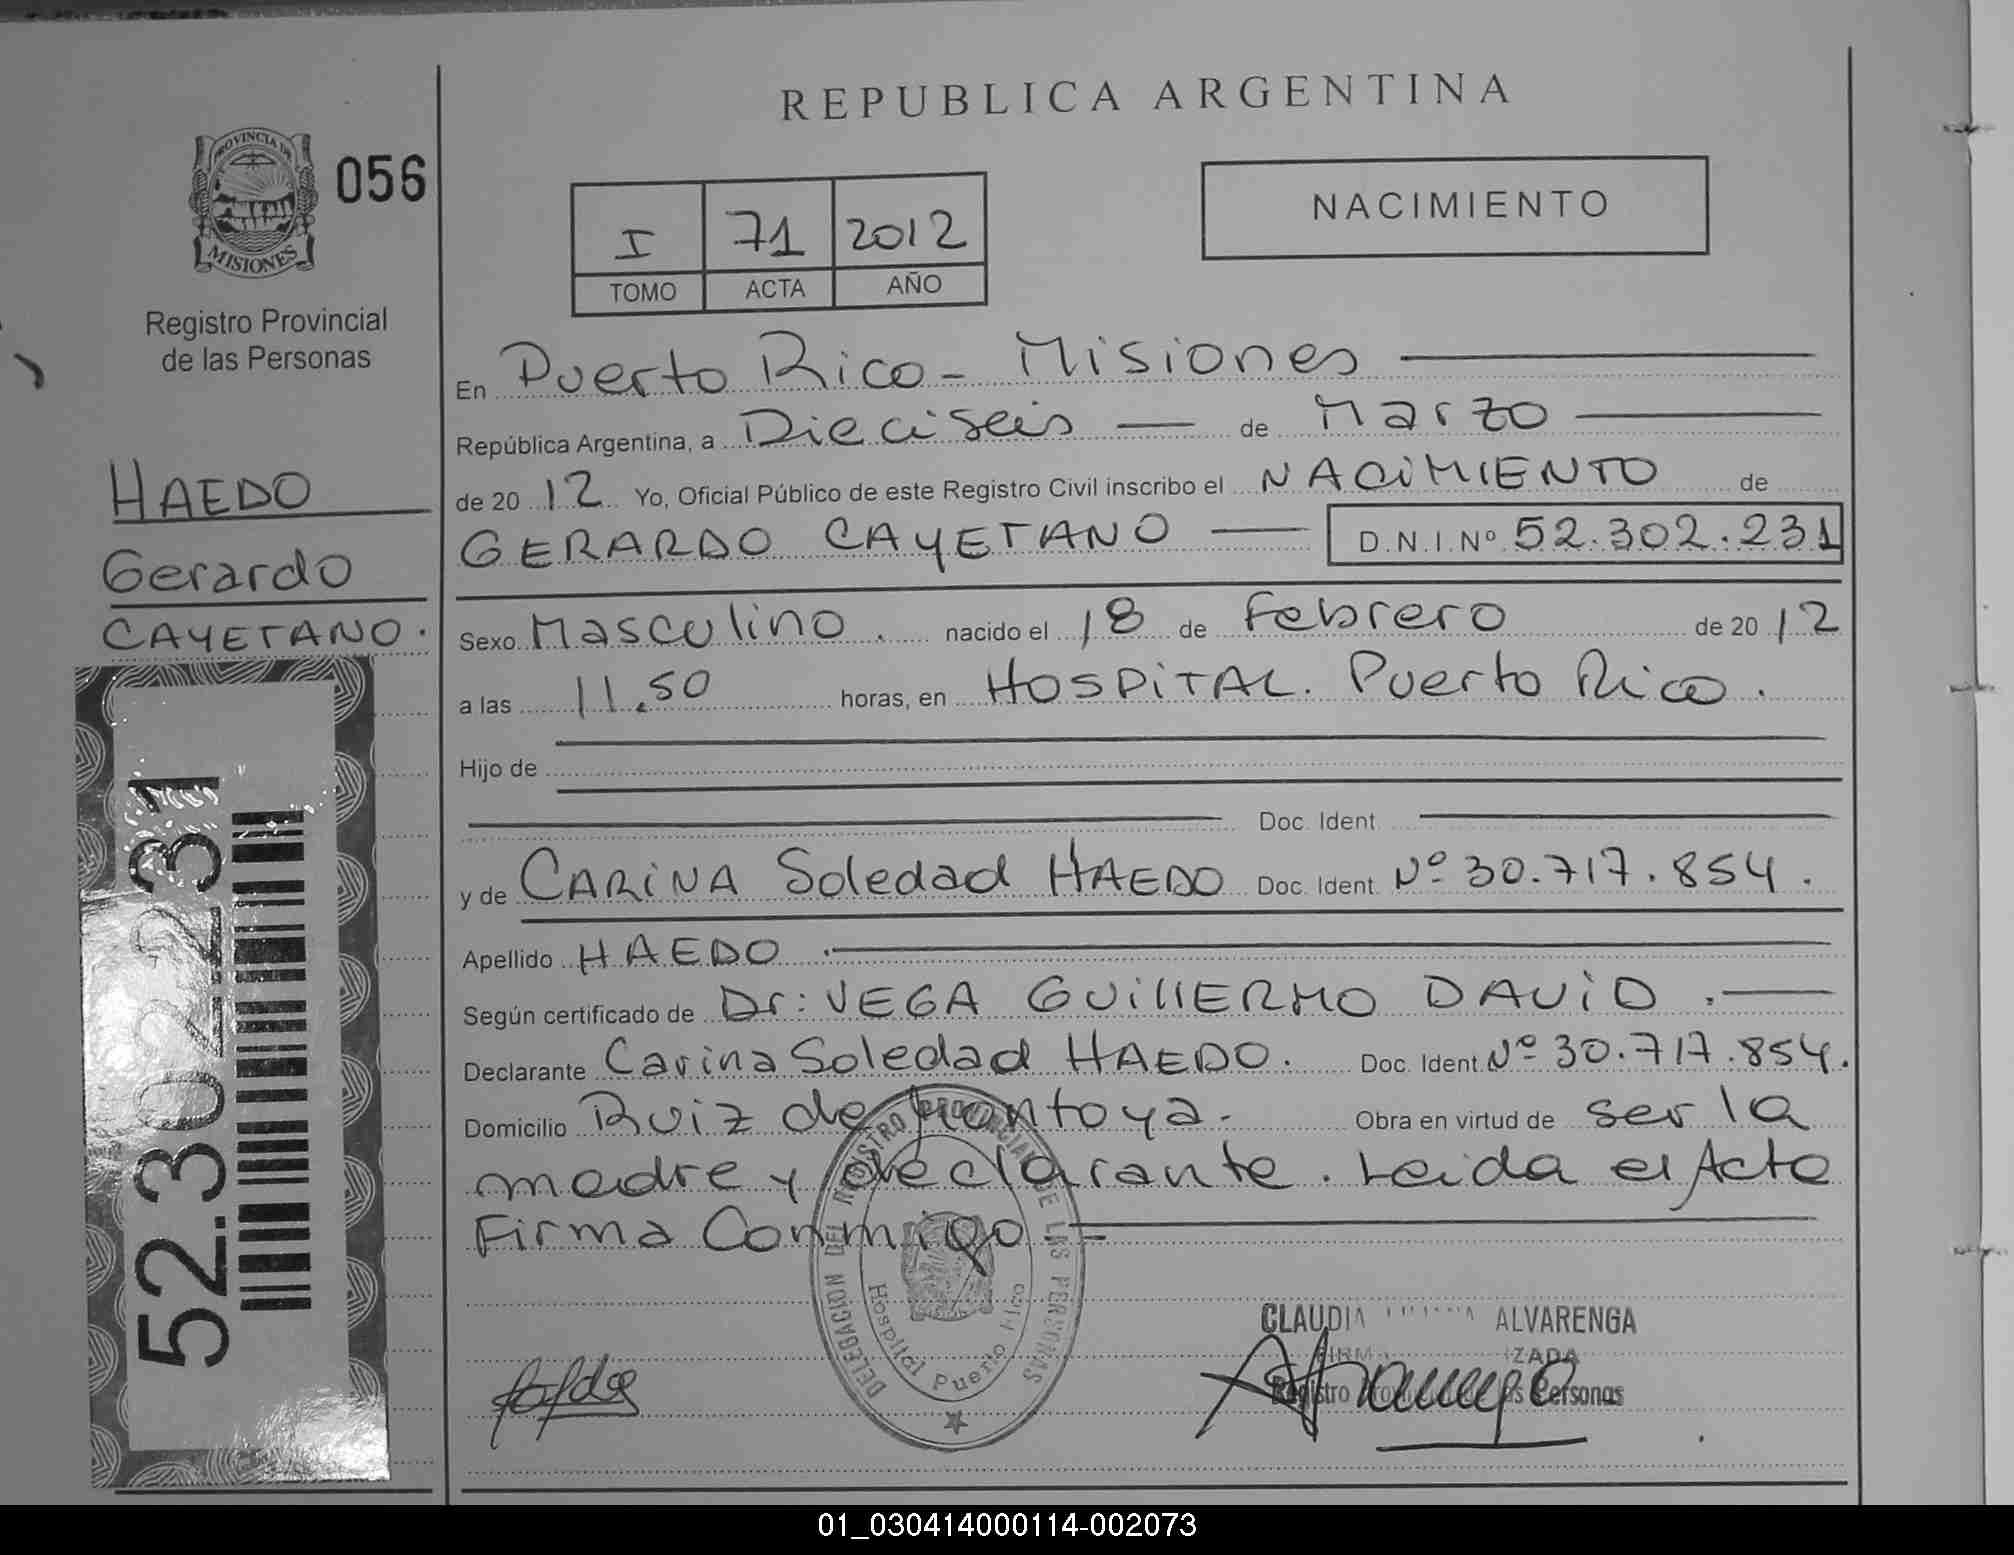 REPUBLICA ARGENTINA
PROVINCIA DE
MISIONES
056
Registro Provincial
de las Personas
I 71 2012
TOMO ACTA AÑO
NACIMIENTO
HAEDO
Gerardo
CAYETANO.
52.302.231
En Puerto Rico - Misiones
República Argentina, a Dieciseis de Marzo
de 20 12 Yo, Oficial Público de este Registro Civil inscribo el NACIMIENTO de
GERARDO CAYETANO D.N.I. Nº 52.302.231
Sexo Masculino. nacido el 18 de Febrero de 20 12
a las 11.50 horas, en HOSPITAL. Puerto Rico.
Hijo de
Doc. Ident
y de CARINA Soledad HAEDO Doc. Ident. Nº 30.717.854.
Apellido HAEDO.
Según certificado de Dr: VEGA GUILLERMO DAVID.
Declarante Carina Soledad HAEDO. Doc. Ident. Nº 30.717.854.
Domicilio Ruiz de Montoya. Obra en virtud de ser la
madre y declarante. Leida el Acta
Firma Conmigo
DELEGACIÓN DEL REGISTRO PROVINCIAL DE LAS PERSONAS
Hospital Puerto Rico
CLAUDIA ALVARENGA
Registro Personas
01_030414000114-002073